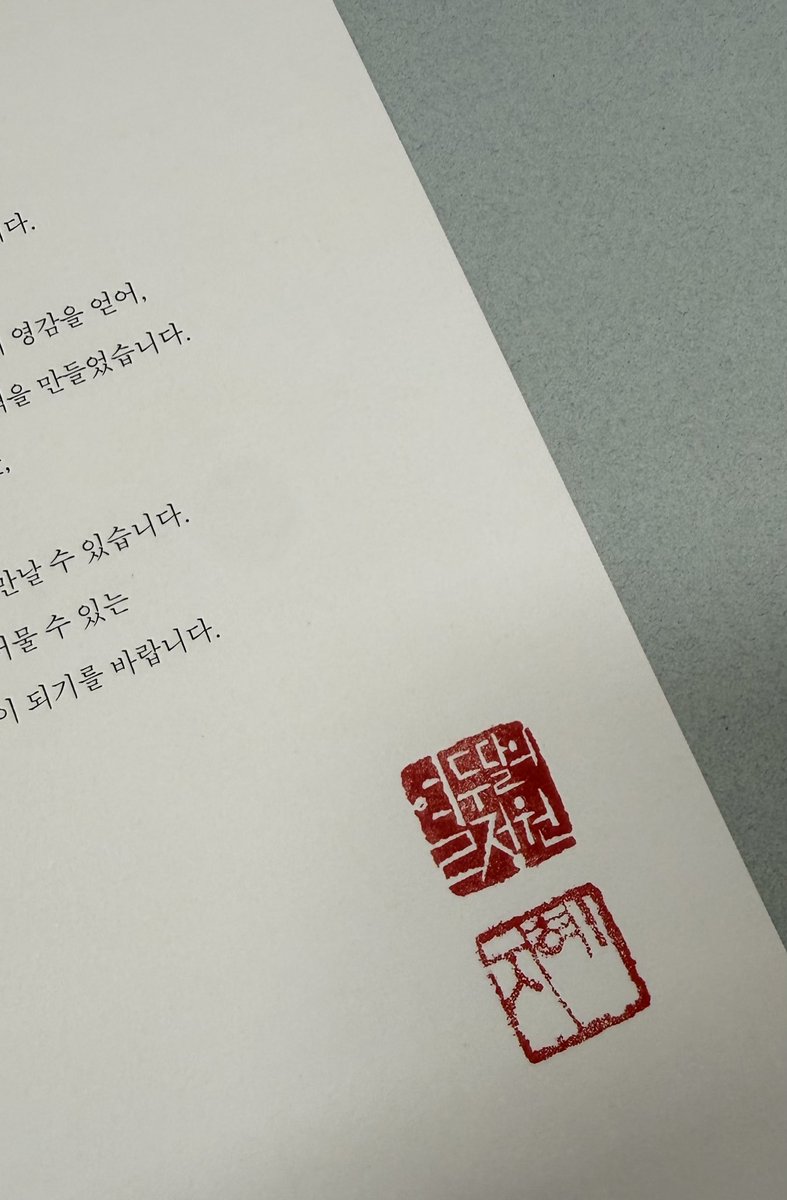 다.
영감을 얻어,
을 만들었습니다.
만날 수 있습니다.
물 수 있는
이 되기를 바랍니다.
열두달의
지혜